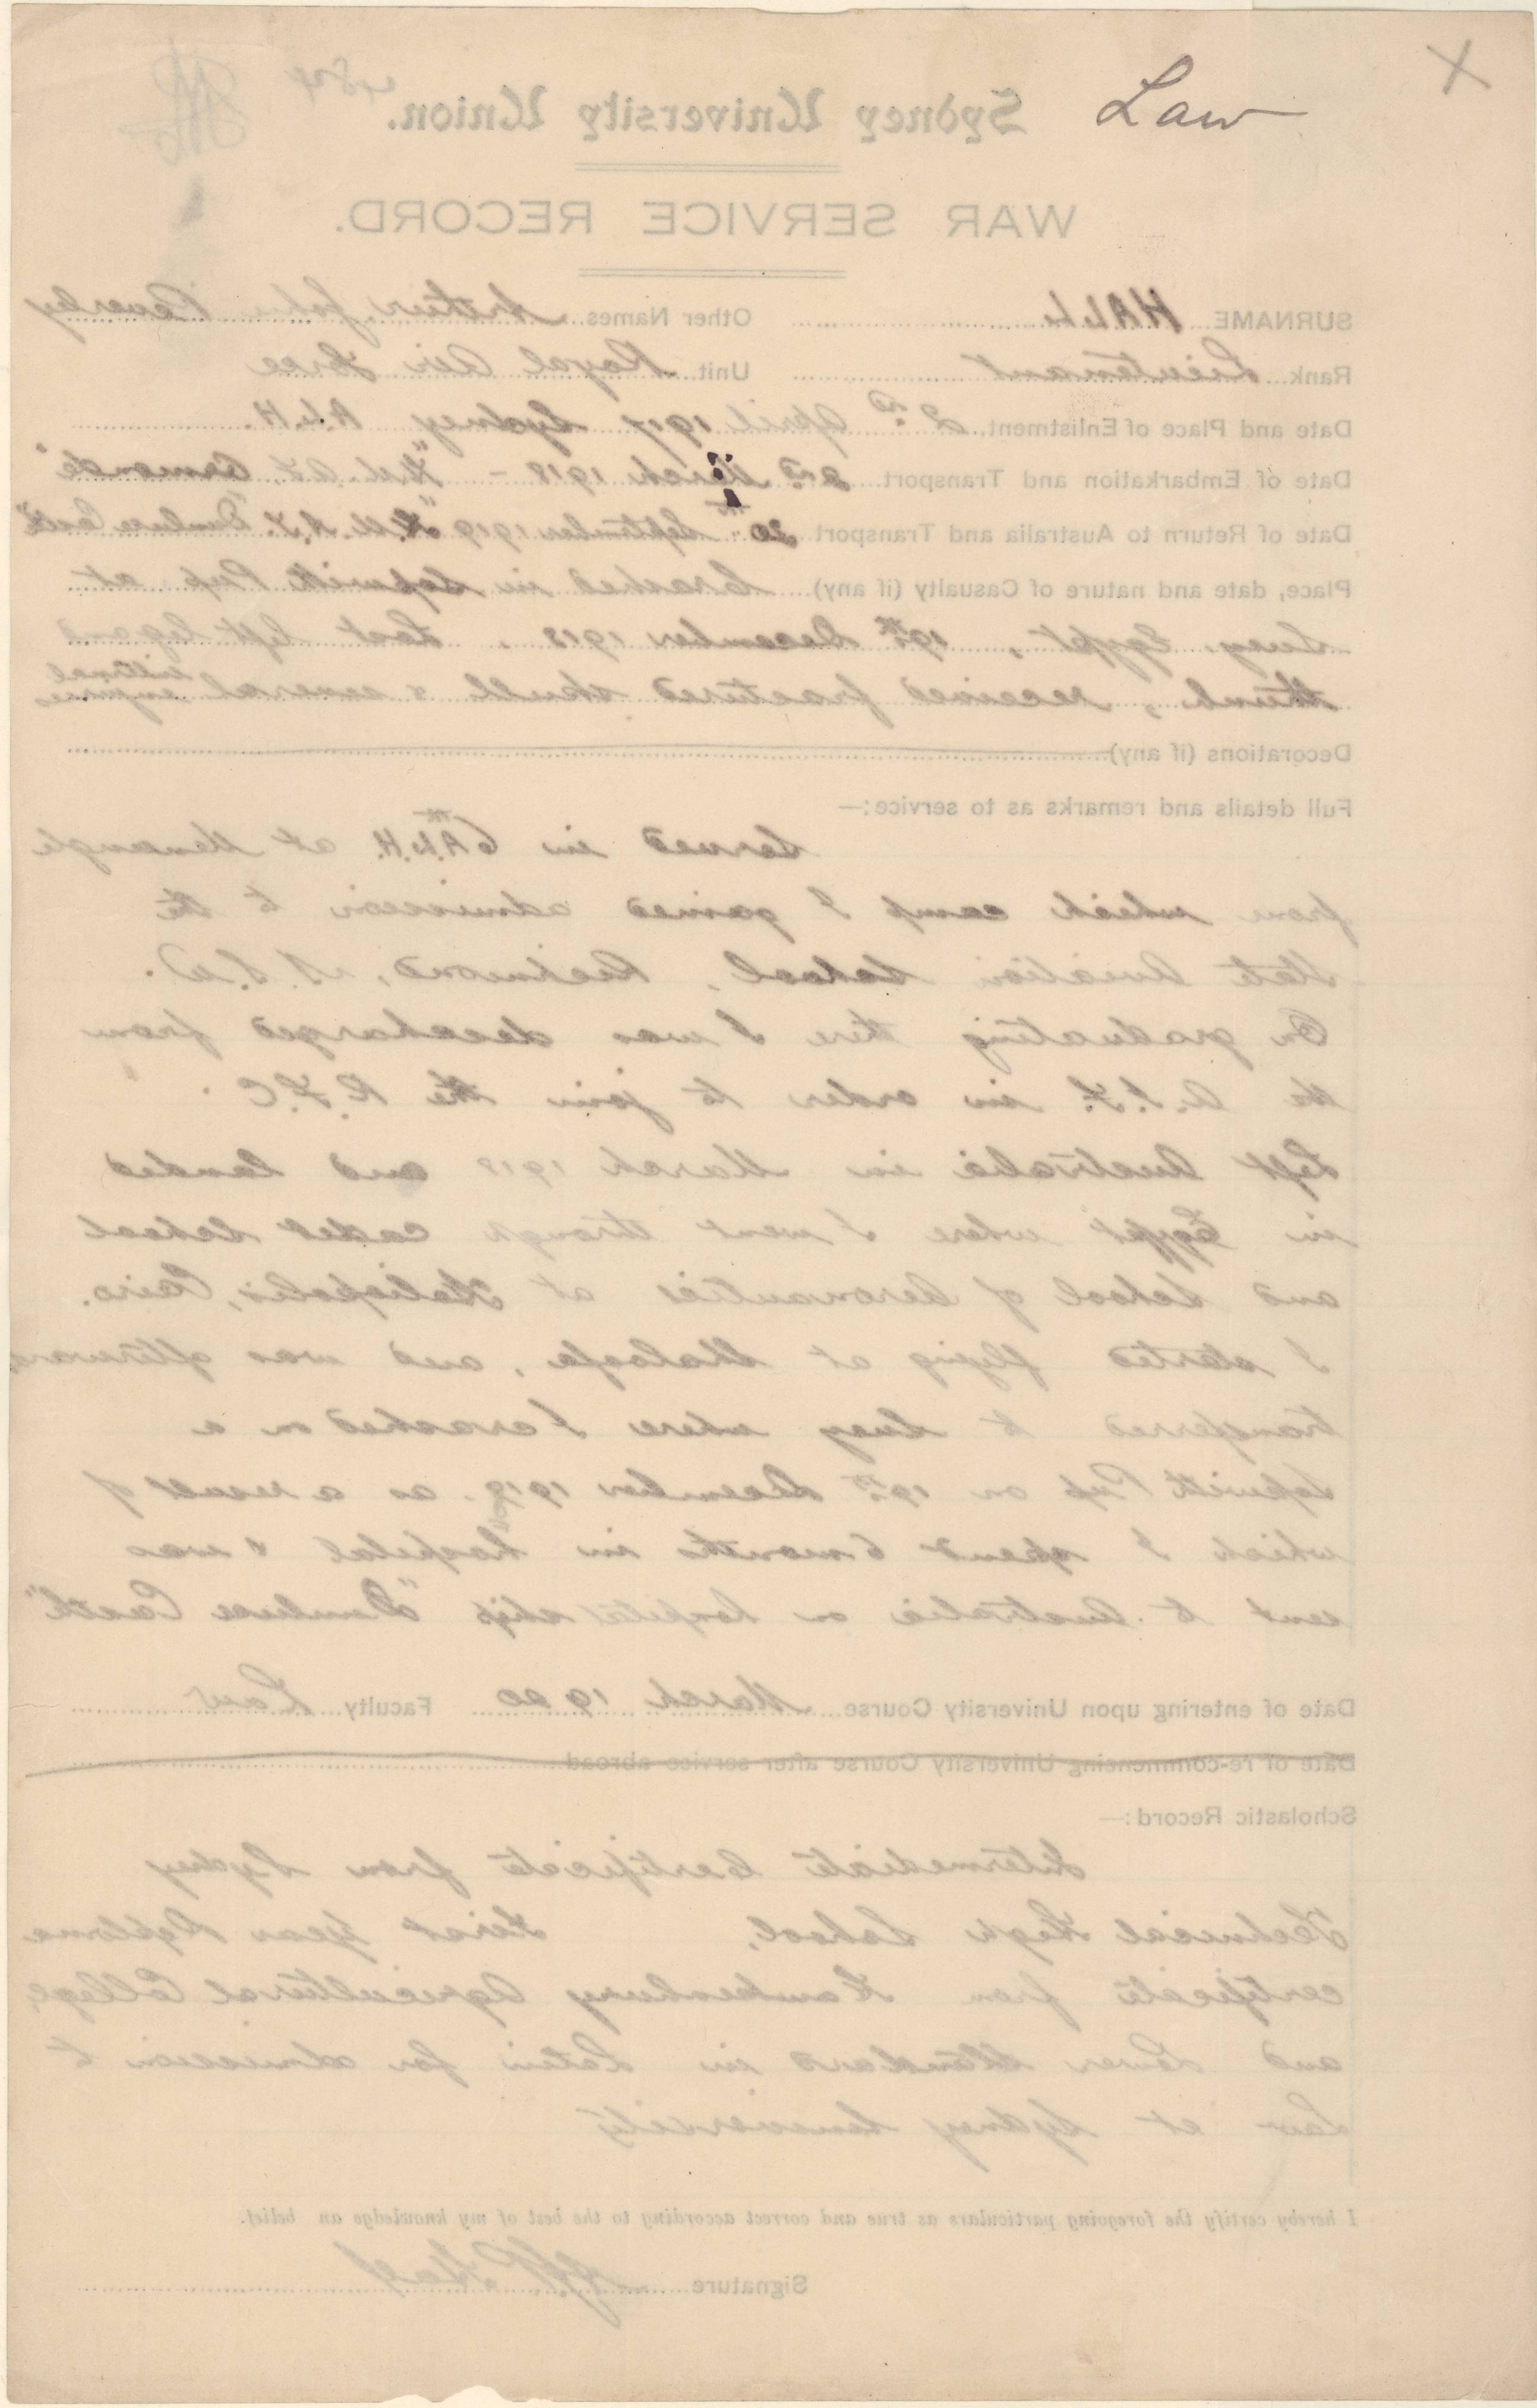 Law X
Sydney University Union.
WAR SERVICE RECORD.
SURNAME HALL Other Names Arthur John Peverley
Rank Lieutenant Unit Royal Air Force
Date and Place of Enlistment 2nd April 1917 Sydney A.L.H.
Date of Embarkation and Transport 2nd March 1918 - "H.M.A.T. Ormonde"
Date of Return to Australia and Transport 20th September 1919 "H.M.A.T. Dunluce Castle"
Place, date and nature of Casualty (if any) Crashed in Sopwith Pup at
Suez, Egypt, 19th December 1918. Lost left leg and
thumb, received fractured skull & several internal injuries
Decorations (if any)
Full details and remarks as to service:—
Served in 6th A.L.H. at Menangle
from which camp I gained admission to the
State Aviation School, Richmond, N.S.W.
On graduating there I was discharged from
the A.I.F. in order to join the R.F.C.
Left Australia in March 1918 and landed
in Egypt where I went through cadet school
and School of Aeronautics at Heliopolis, Cairo.
I started flying at Shaloofa, and was afterwards
transferred to Suez where I crashed on a
Sopwith Pup on 19th December 1918. as a result of
which I spent 6 months in hospital & was
sent to Australia on hospital ship "Dunluce Castle"
Date of entering upon University Course March 1920 Faculty Law
Date of re-commencing University Course after service abroad
Scholastic Record:—
Intermediate Certificate from Sydney
Technical High School, First Year Diploma
certificate from Hawkesbury Agricultural College,
and Lower Standard in Latin for admission to
Law at Sydney University
I hereby certify the foregoing particulars as true and correct according to the best of my knowledge an belief.
Signature AJP Hall